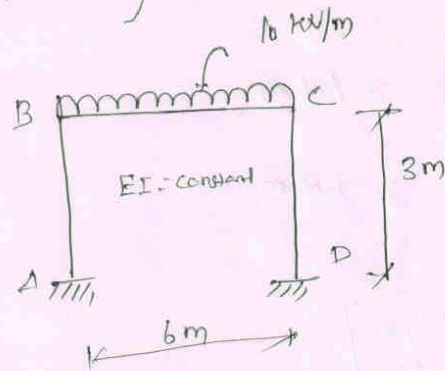 10 kN/m
B
C
EI = constant
3m
A
D
6m